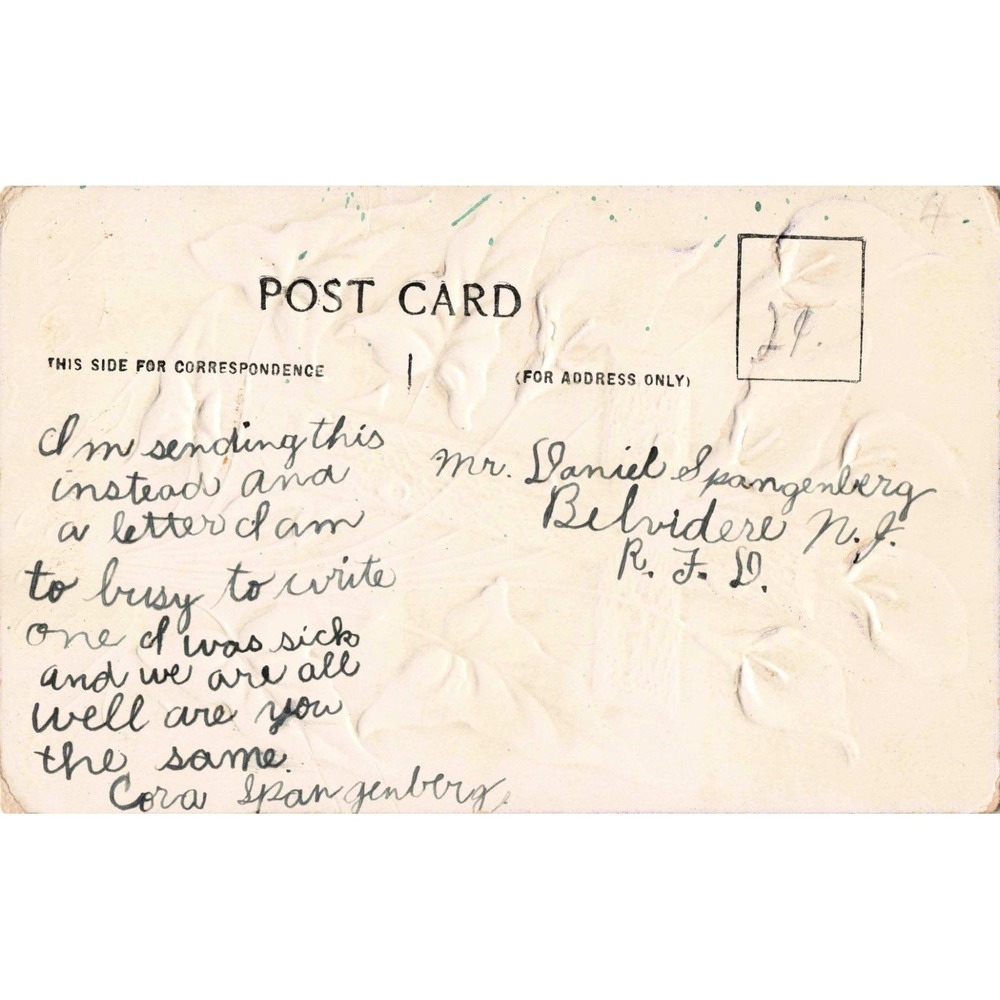 POST CARD
THIS SIDE FOR CORRESPONDENCE
(FOR ADDRESS ONLY)
2¢.
I m sending this
instead and
a letter I am
to busy to write
one I was sick
and we are all
well are you
the same.
Cora Spangenberg.
Mr. Daniel Spangenberg
Belvidere N. J.
R. F. D.